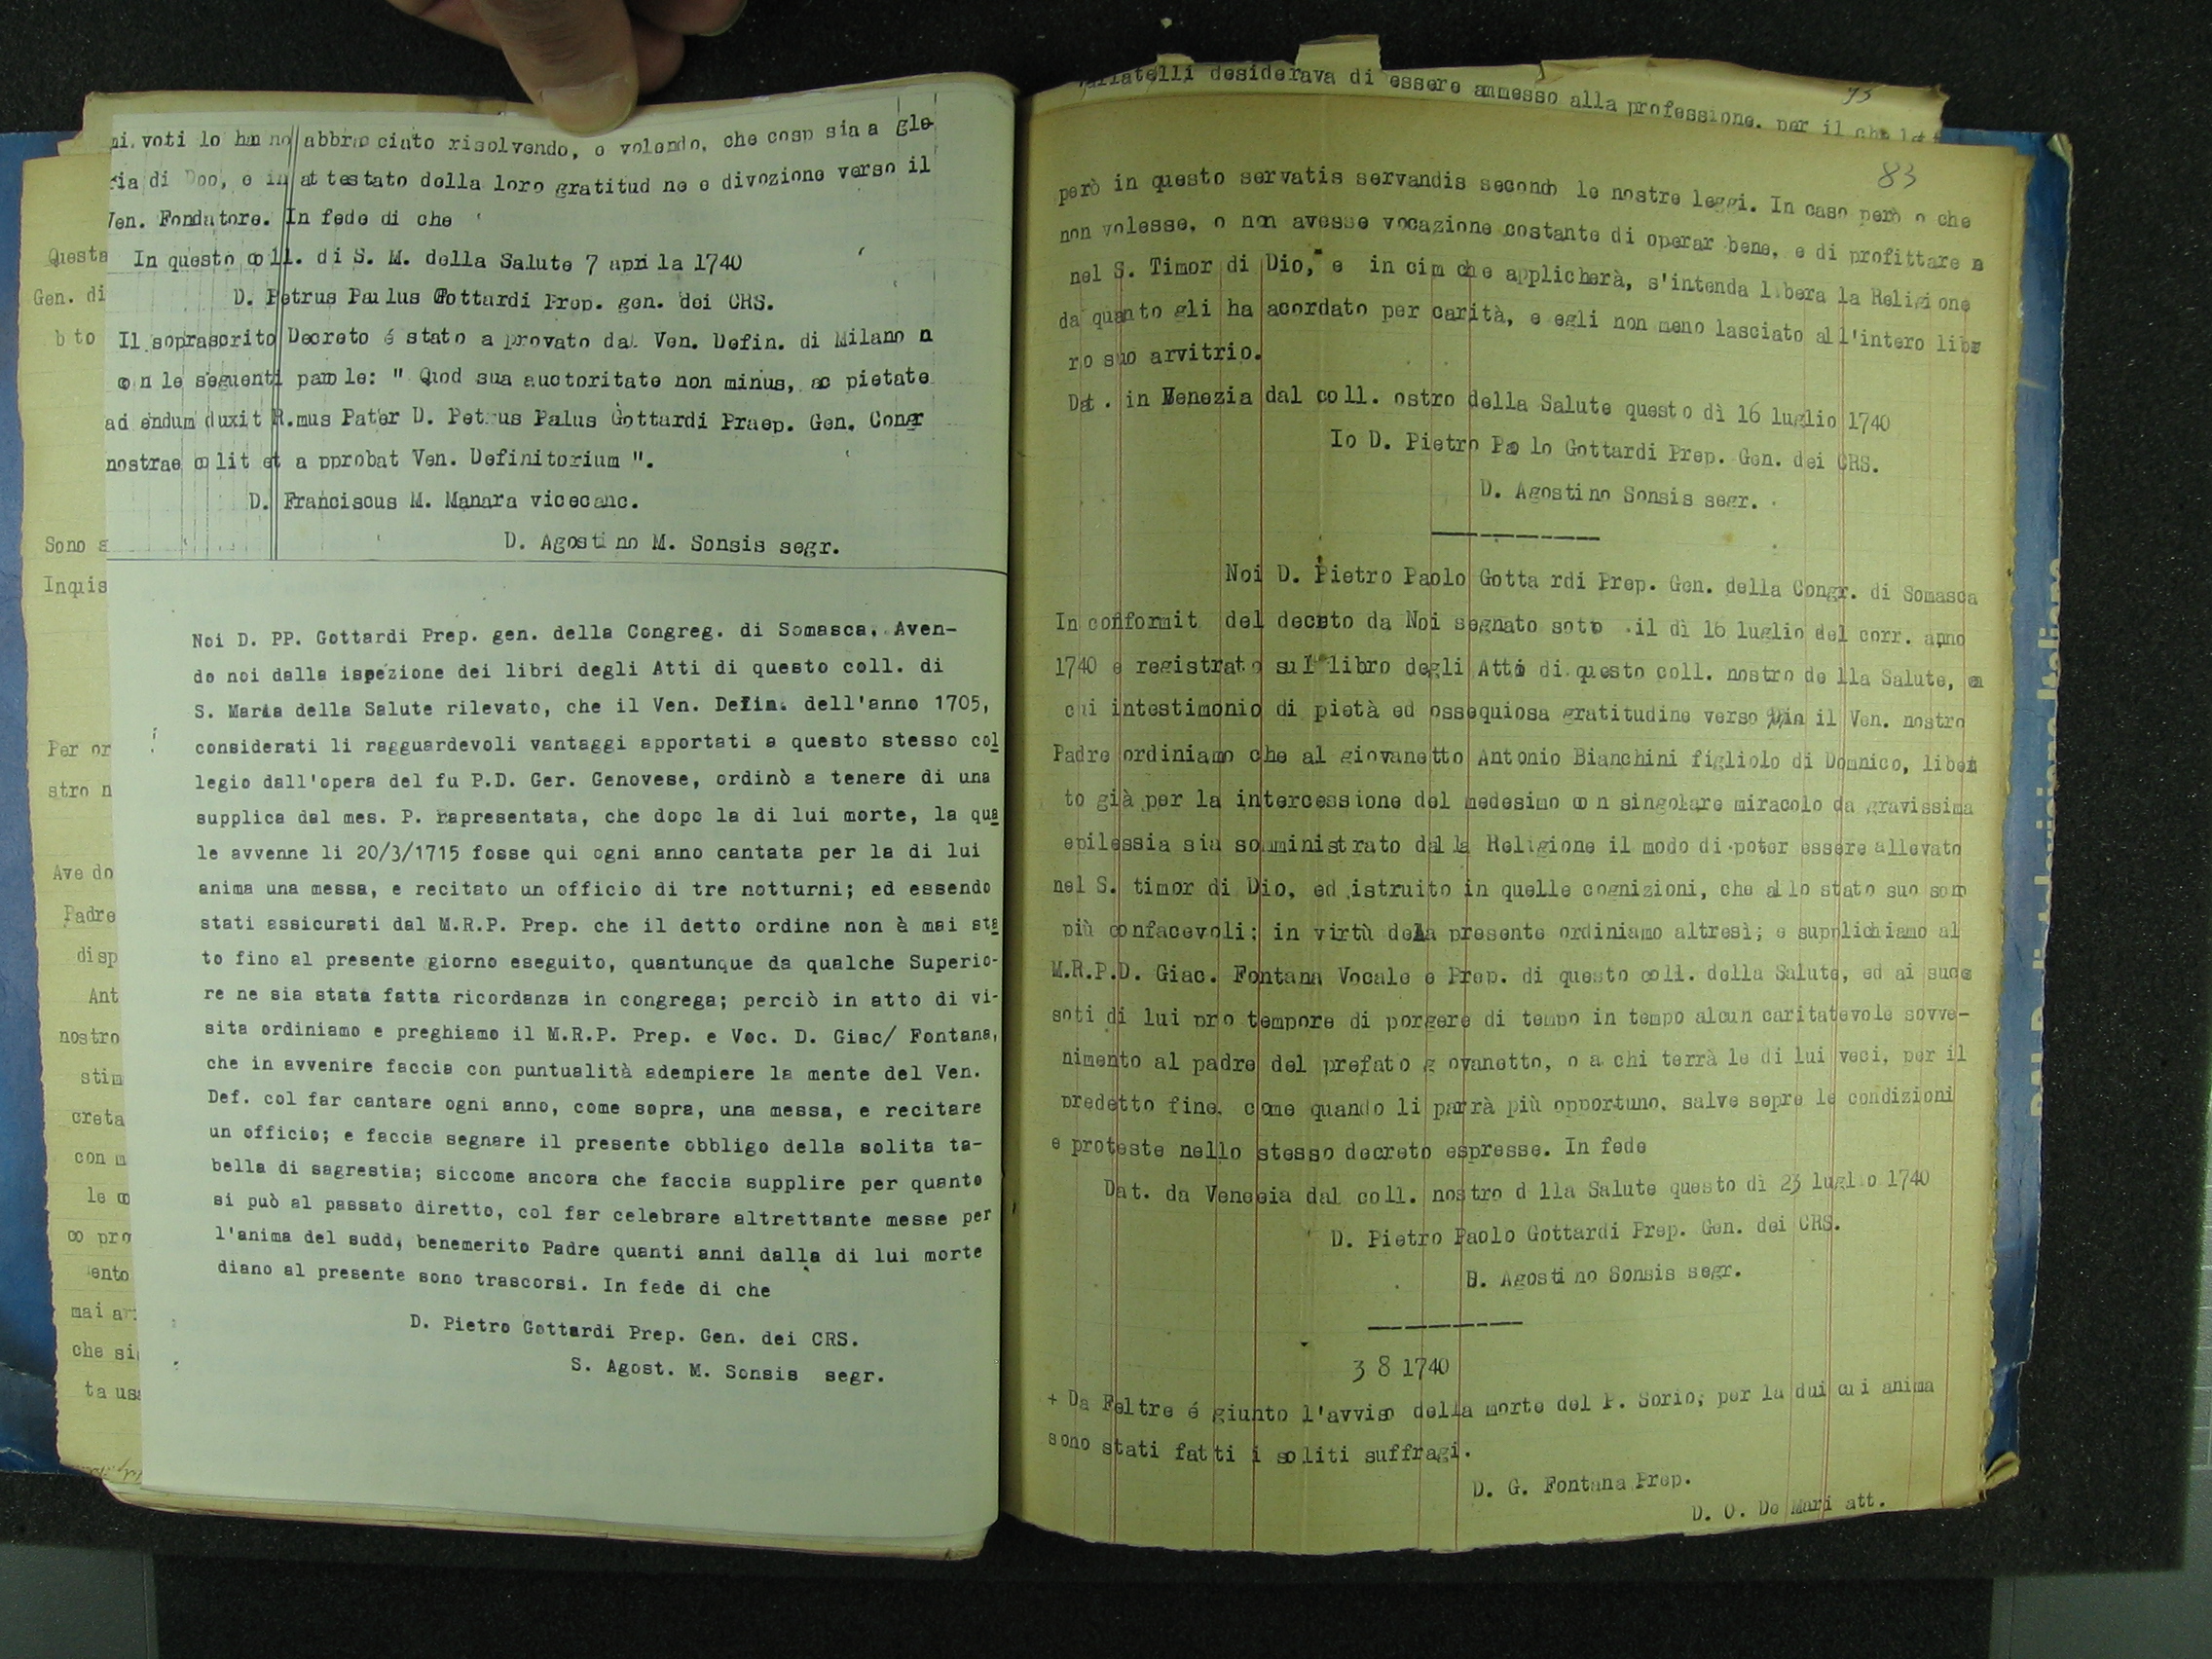 ni voti lo hanno abbracciato risolvendo, e volendo, che cosp sia a glo-
ria di Doo, e in attestato della loro gratitud ne e divozione verso il
Ven. Fondatore. In fede di che
In questo coll. di S. M. della Salute 7 apri la 1740
D. Petrus Paulus Gottardi Prep. gen. dei CRS.
Il soprascrito Decreto é stato a provato dal Ven. Defin. di Milano
con le seguenti parole: " Quod sua auctoritate non minus, ac pietate
ad endum duxit R.mus Pater D. Petrus Palus Gottardi Praep. Gen. Congr
nostrae colit et a pprobat Ven. Definitorium ".
D. Franciscus M. Manara vicecanc.
D. Agostino M. Sonsis segr.
Noi D. PP. Gottardi Prep. gen. della Congreg. di Somasca. Aven-
do noi dalla ispezione dei libri degli Atti di questo coll. di
S. Maria della Salute rilevato, che il Ven. Defin. dell'anno 1705,
considerati li ragguardevoli vantaggi apportati a questo stesso col
legio dall'opera del fu P.D. Ger. Genovese, ordinò a tenere di una
supplica dal mes. P. rapresentata, che dopo la di lui morte, la qua
le avvenne li 20/3/1715 fosse qui ogni anno cantata per la di lui
anima una messa, e recitato un officio di tre notturni; ed essendo
stati assicurati dal M.R.P. Prep. che il detto ordine non è mai sta
to fino al presente giorno eseguito, quantunque da qualche Superio-
re ne sia stata fatta ricordanza in congrega; perciò in atto di vi-
sita ordiniamo e preghiamo il M.R.P. Prep. e Voc. D. Giac/ Fontana,
che in avvenire faccia con puntualità adempiere la mente del Ven.
Def. col far cantare ogni anno, come sopra, una messa, e recitare
un officio; e faccia segnare il presente obbligo della solita ta-
bella di sagrestia; siccome ancora che faccia supplire per quanto
si può al passato diretto, col far celebrare altrettante messe per
l'anima del sudd, benemerito Padre quanti anni dalla di lui morte
diano al presente sono trascorsi. In fede di che
D. Pietro Gottardi Prep. Gen. dei CRS.
S. Agost. M. Sonsis segr.
Questa
Gen. di
b to
Sono a
Inquis
Per or
stro n
Ave do
Padre
disp
Ant
nostro
stim
creta
con m
le co
co pro
ento
mai
che si
ta usa
desiderava di essere ammesso alla professione. per il che
93
83
però in questo servatis servandis secondo le nostre leggi. In caso però o che
non volesse, o non avesse vocazione costante di operar bene, e di profittare
nel S. Timor di Dio, e in cim che applicherà, s'intenda libera la Religione
da quanto gli ha acordato per carità, e egli non meno lasciato all'intero libe
ro suo arvitrio.
Dat. in Venezia dal coll. ostro della Salute questo dì 16 luglio 1740
Io D. Pietro Paolo Gottardi Prep. Gen. dei CRS.
D. Agostino Sonsis segr.
Noi D. Pietro Paolo Gotta rdi Prep. Gen. della Congr. di Somasca
In conformit del decreto da Noi segnato sotto il dì 16 luglio del corr. anno
1740 e registrato sul libro degli Atti di questo coll. nostro de lla Salute,
cui intestimonio di pietà ed ossequiosa gratitudine verso il Ven. nostro
Padre ordiniamo che al giovanetto Antonio Bianchini figliolo di Domnico, libera
to già per la intercessione del medesimo con singolare miracolo da gravissima
epilessia sia somministrato dalla Religione il modo di poter essere allevato
nel S. timor di Dio, ed istruito in quelle cognizioni, che allo stato suo sono
più confacevoli; in virtù della presente ordiniamo altresì; e supplichiamo al
M.R.P.D. Giac. Fontana Vocale e Prep. di questo coll. della Salute, ed ai succe
soti di lui pro tempore di porgere di tempo in tempo alcun caritatevole sovve-
nimento al padre del prefato g ovanetto, o a chi terrà le di lui veci, per il
predetto fine, come quando li parrà più opportuno, salve sepre le condizioni
e proteste nello stesso decreto espresse. In fede
Dat. da Venesia dal coll. nostro d lla Salute questo dì 23 luglio 1740
D. Pietro Paolo Gottardi Prep. Gen. dei CRS.
D. Agostino Sonsis segr.
3 8 1740
+ Da Feltre é giunto l'avviso della morte del P. Sorio; per la dui cui anima
sono stati fatti i soliti suffragi.
D. G. Fontana Prep.
D. O. De Mari att.